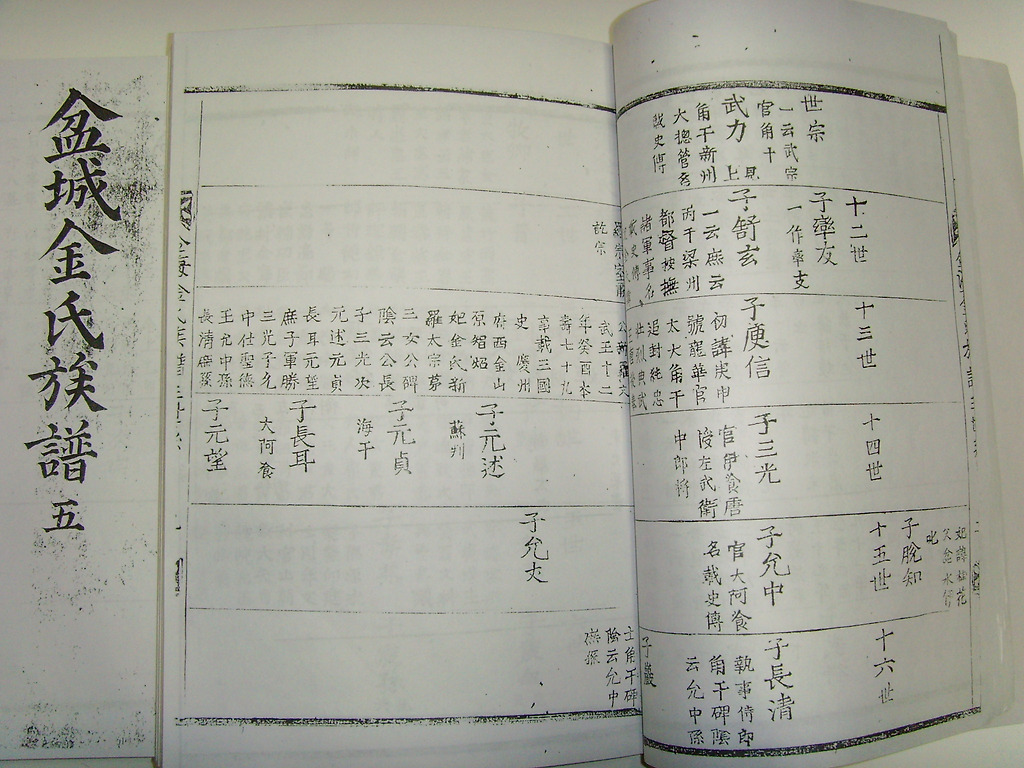 盆城金氏族譜 五
世宗
一云武宗
官角干
武力
角干新州
大摠管
戟史傳
十二世
一作率支
子舒玄
一云庶云
丙干梁州
都督按撫
諸軍事名
十三世
子庾信
初諱庚申
號龍華官
太大角干
追封純忠
壯烈興武
武王十二
年癸酉卒
壽七十九
葬載三國
史慶州
府西金山
原智炤
妃金氏新
羅太宗第
三女公碑
陰云公長
子三光次
元述元貞
長耳元望
庶子軍勝
三光子允
中仕聖德
王允中孫
長淸庶孫
十四世
子三光
官伊飡唐
後左武衛
中郎將
子元述
蘇判
子元貞
海干
子長耳
大阿飡
子元望
子脫知
十五世
子允中
官大阿飡
名戟史傳
子允文
十六世
子長清
執事侍郎
角干碑陰
云允中孫
子巖
士角干碑
陰云允中
庶孫